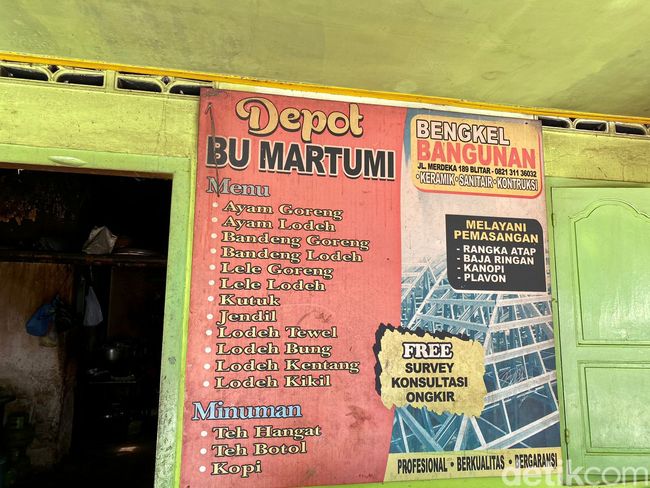 Depot
BU MARTUMI
Menu
• Ayam Goreng
• Ayam Lodeh
• Bandeng Goreng
• Bandeng Lodeh
• Lele Goreng
• Lele Lodeh
• Kutuk
• Jendil
• Lodeh Tewel
• Lodeh Bung
• Lodeh Kentang
• Lodeh Kikil
Minuman
• Teh Hangat
• Teh Botol
• Kopi
BENGKEL
BANGUNAN
JL. MERDEKA 189 BLITAR - 0821 311 36032
•KERAMIK •SANITAIR •KONTRUKSI
MELAYANI
PEMASANGAN
- RANGKA ATAP
- BAJA RINGAN
- KANOPI
- PLAVON
FREE
SURVEY
KONSULTASI
ONGKIR
PROFESIONAL • BERKUALITAS • BERGARANSI
detikcom